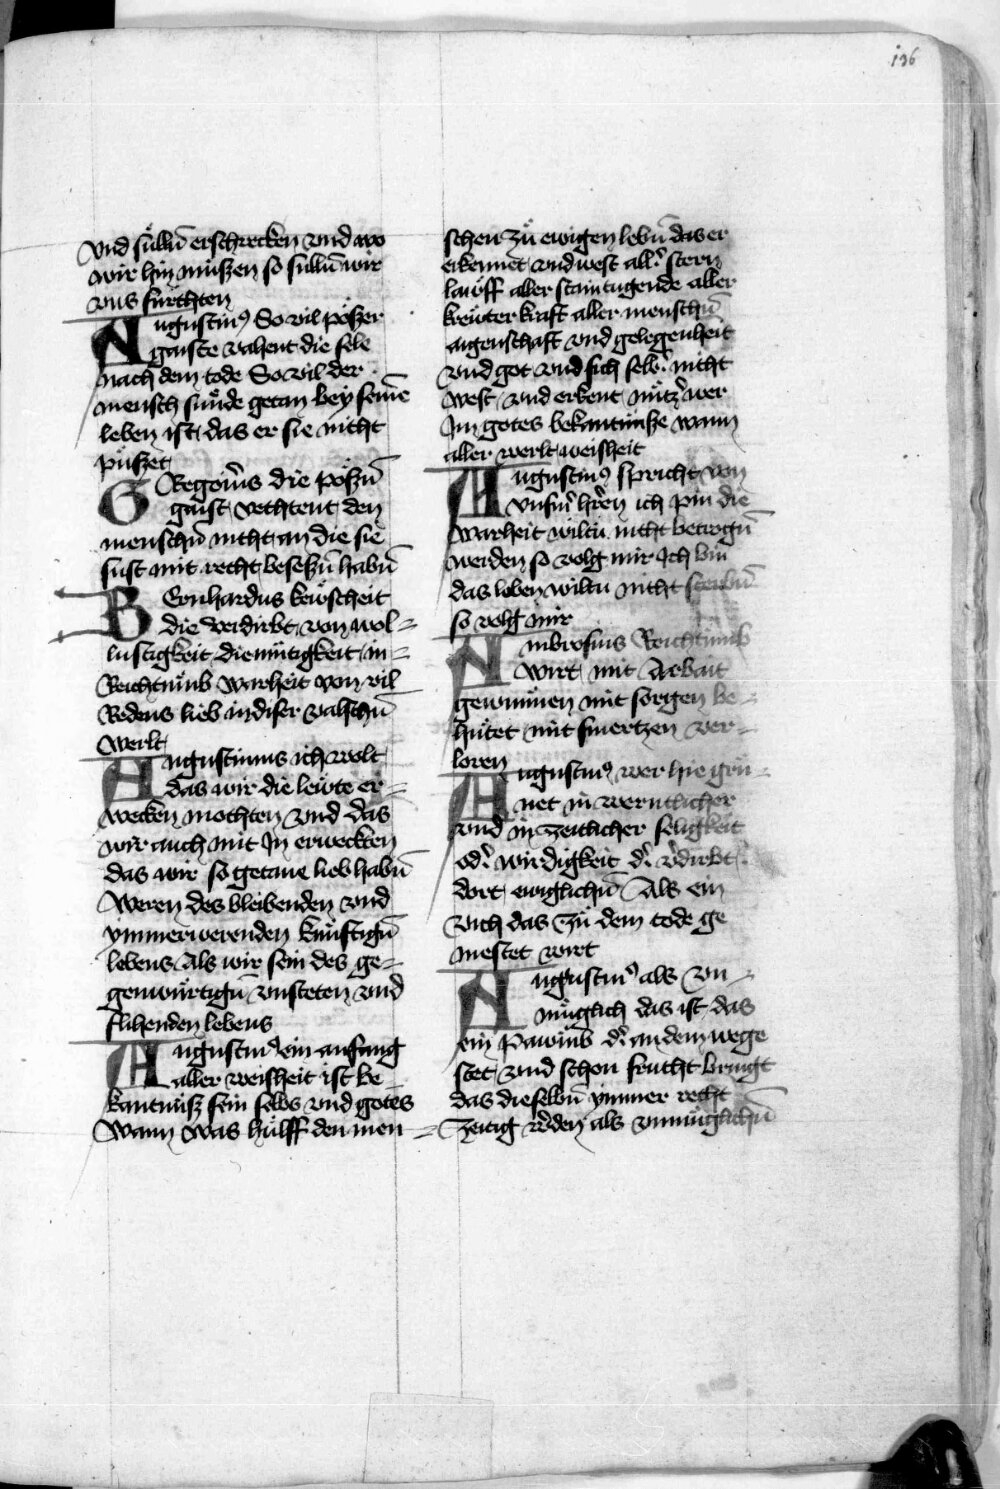 136
vnd süllū erschrecken vnd wo
wir hin müszen so süllū wir
vns fürchten
Augustin⁹ So vil pöszer
gaiste vahent die sele
nach dem tode So vil der
mensch sünde getan bey seinē
leben ist das er sie nicht
püszet
GRegori⁹ die pöszū
gaist vechtent den
menschū nicht an die sie
sust mit recht beseszū habū
Bernhardus kewscheit
die verdirbt von wol=
lustigkeit diemütigkeit in=
Reichtumb warheit von vil
Redens lieb in diser valschū
werlt
Augustinus ich wolt
das wir die lewte er=
wecken mochten vnd das
wir auch mit In erweckten
das wir so getane lieb habū
weren des bleibenden vnd
ymmerwerenden künftigū
lebens Als wir sein des ge=
genwürtigū vnsteten vnd
flihenden lebens
Augustin⁹ ein anfang
aller weisheit ist be=
kantnüsz sein selbs vnd gotes
Wann was hülff den men=
schen zu ewigen lebū das er
erkennet vnd west all̕ stern
lawff aller stain tugende aller
krewter kraft aller menschū
aigenschaft vnd gelegenheit
vnd got vnd sich selb̕ nicht
west vnd erkent nütz̕ wer
Im gotes bekantnüsze wann
aller werlt weisheit
Augustin⁹ spricht von
vnserm̄ hr̄en ich pin die
warheit wiltu nicht betrogū
werden so volg mir Ich bin
das leben wiltu nicht sterbū
so volg mir
Ambrosius Reichtumb
wirt mit Arbait
gewunnen mit sorgen be=
hütet mit smertzen ver=
loren
Augustin⁹ wer hie grü=
net in werntlicher
vnd in zeitlicher seligkeit
od̕ wirdigkeit d̕ v̕dirbt
dort ewiglichū Als ein
vich das zu dem tode ge
mestet wirt
Augustin⁹ als vn=
müglich das ist das
ein Pawmb d̕ an dem wege
stet vnd schon frucht bringt
das dieselbū ymmer recht
zeitig w̕den als vnmüglichū